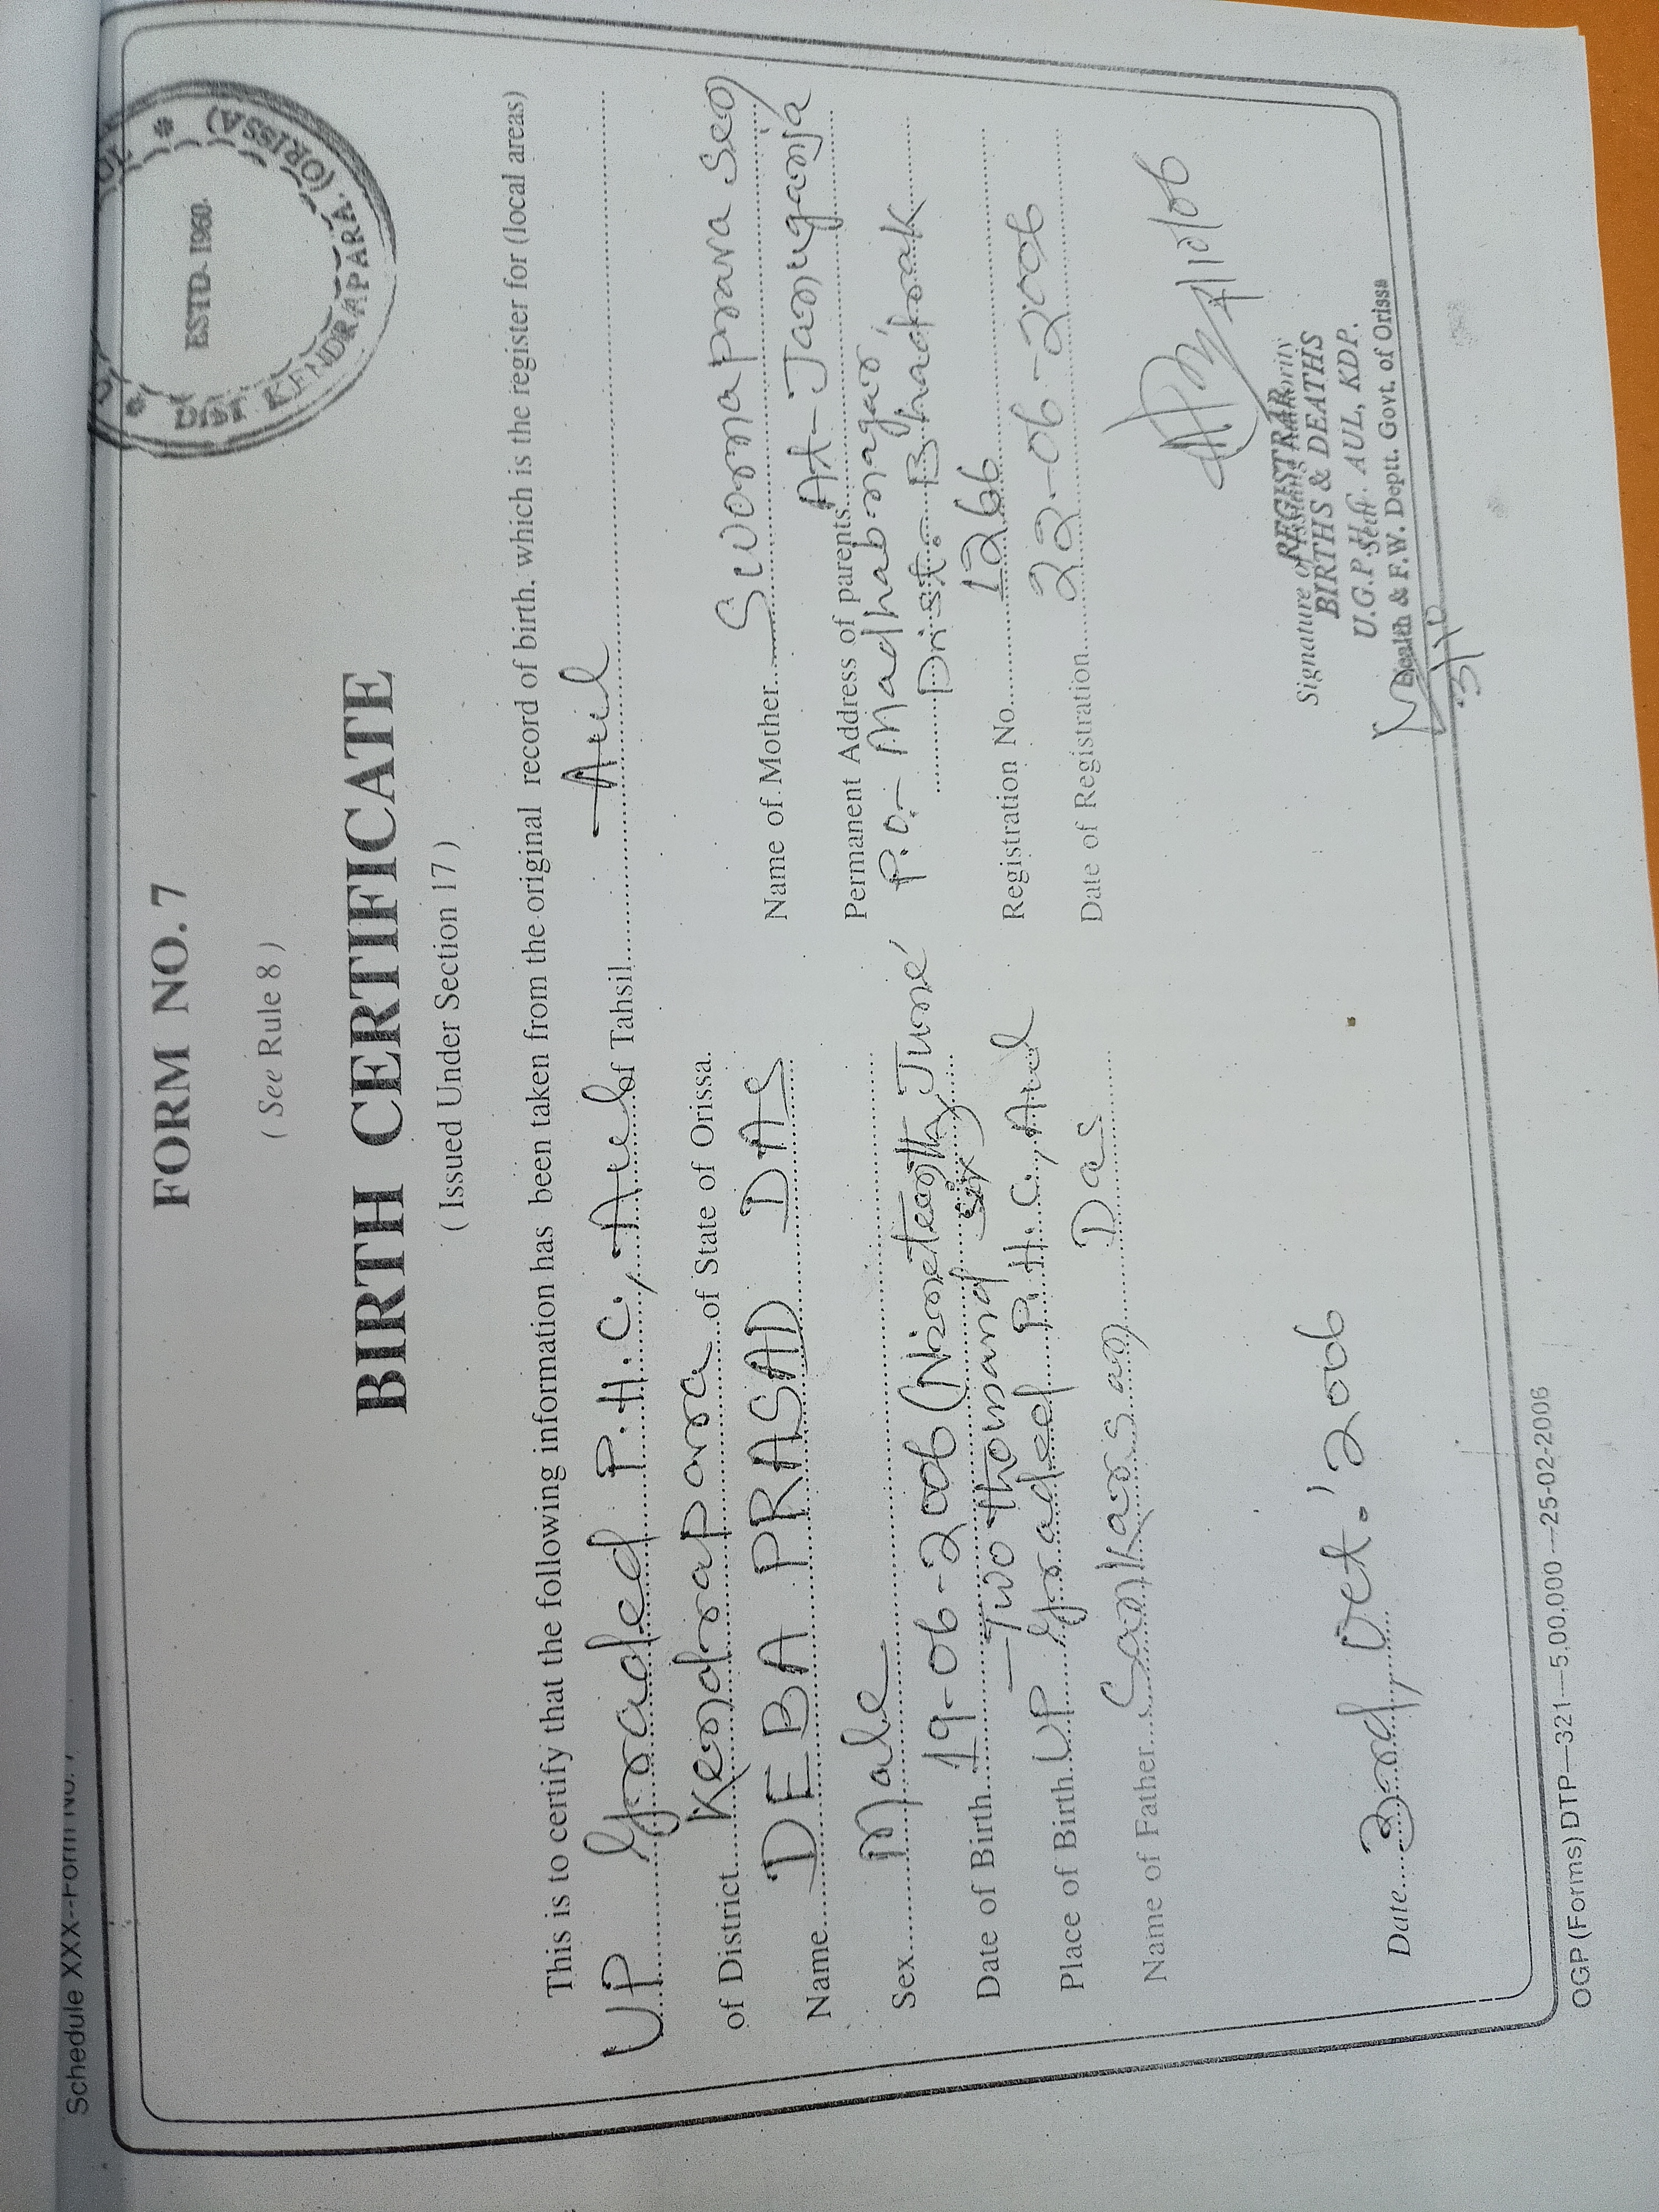 Schedule XXX--Form No. 7
ESTD. 1960.
DIST KENDRAPARA. (ORISSA)
FORM NO. 7
( See Rule 8 )
BIRTH CERTIFICATE
( Issued Under Section 17 )
This is to certify that the following information has been taken from the original record of birth, which is the register for (local areas)
UP Graded P.H.C., Aul of Tahsil Aul
of District Kendrapara of State of Orissa.
Name DEBA PRASAD DAS
Sex Male
Date of Birth 19-06-2006 (Nineteenth June
Two thousand six)
Place of Birth UP Graded P.H.C., Aul
Name of Father Sankarsan Das
Name of Mother Swornaprava
Permanent Address of parents At- Januganja
P.O.- Madhabnagar
Dist.- Bhadrak
Registration No. 1266
Date of Registration 22-06-2006
4/10/06
Date 2nd, Oct.' 2006
Signature of
REGISTRAR
BIRTHS & DEATHS
U.G.P.H.C. AUL, KDP.
Health & F.W. Deptt. Govt. of Orissa
OGP (Forms) DTP—321—5,00,000—25-02-2006